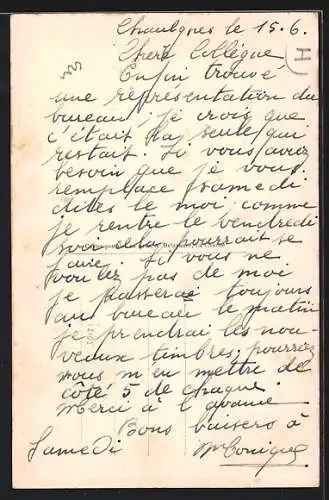 Chaulgnes le 15.6.
Chère Collègue
Enfin trouvé
une représentation du
bureau, je crois que
c'était la seule qui
restait. Si vous avez
besoin que je vous
remplace samedi
dites le moi, comme
je rentre le vendredi
soir cela pourrait se
faire. Si vous ne
voulez pas de moi
je passerai toujours
au bureau le matin
je prendrai les nou-
veaux timbres, pourriez
vous m'en mettre de
côté 5 de chaque.
Merci à l'avance
Bons baisers à
Samedi